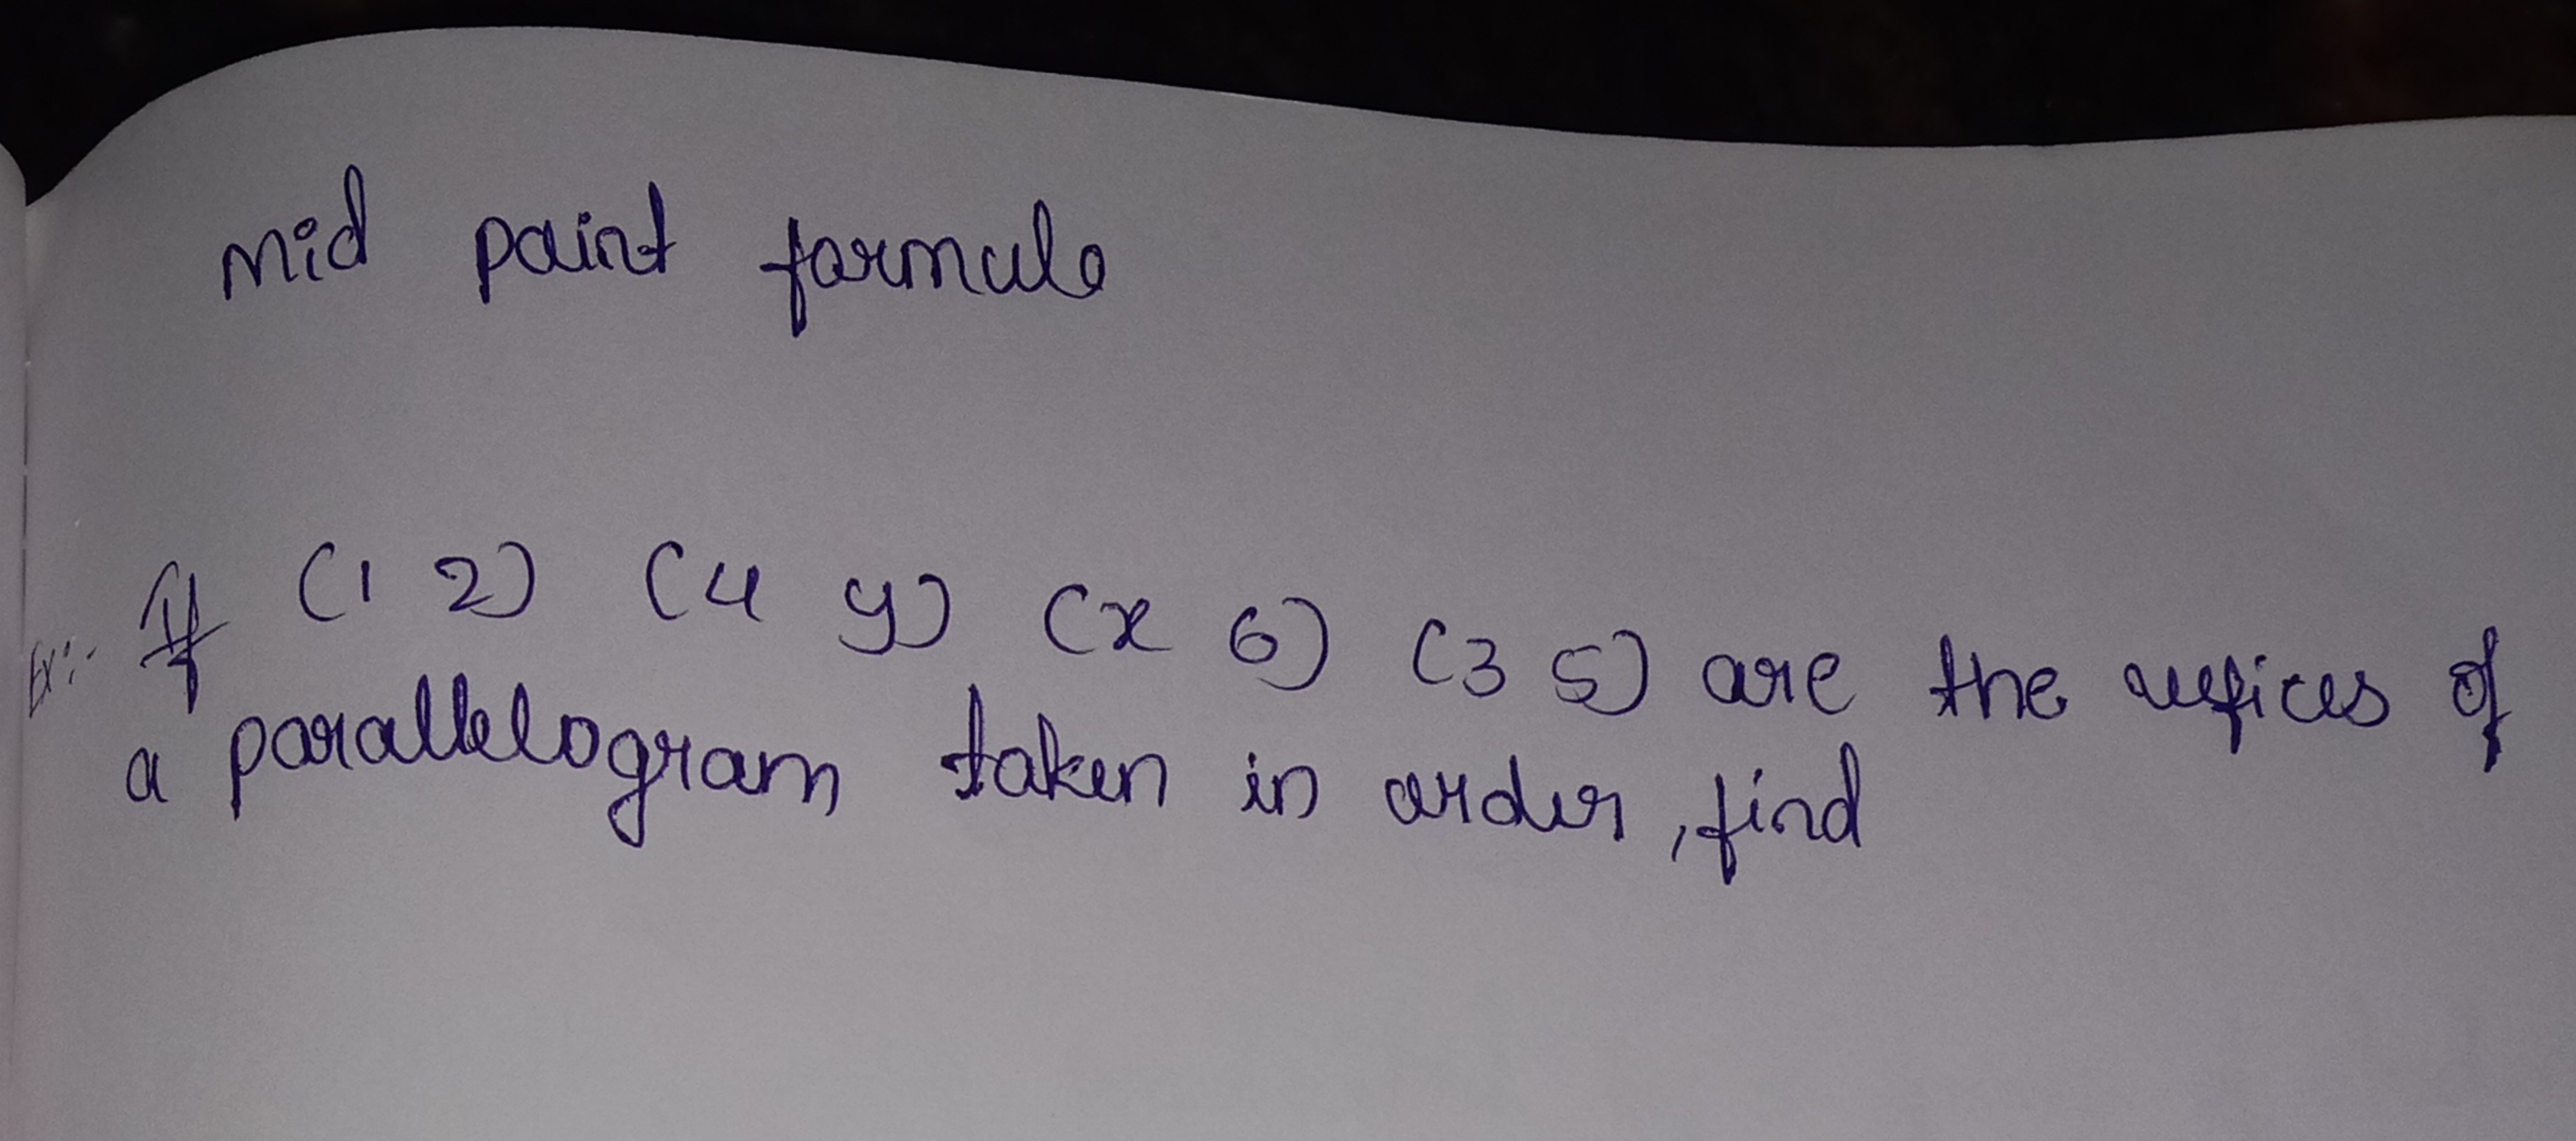 Mid paint formula
Ex:- If (1 2) (4 y) (x 6) (3 5) are the of
a parallelogram taken in order, find